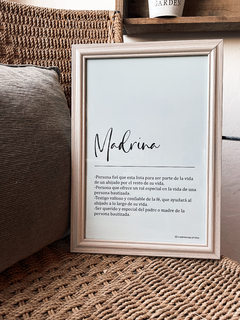 JARDÍN
Madrina
-Persona fiel que esta lista para ser parte de la vida
de un ahijado por el resto de su vida.
-Persona que ofrece un rol especial en la vida de una
persona bautizada.
-Testigo valioso y confiable de la fé, que ayudará al
ahijado a lo largo de su vida.
-Ser querido y especial del padre o madre de la
persona bautizada.